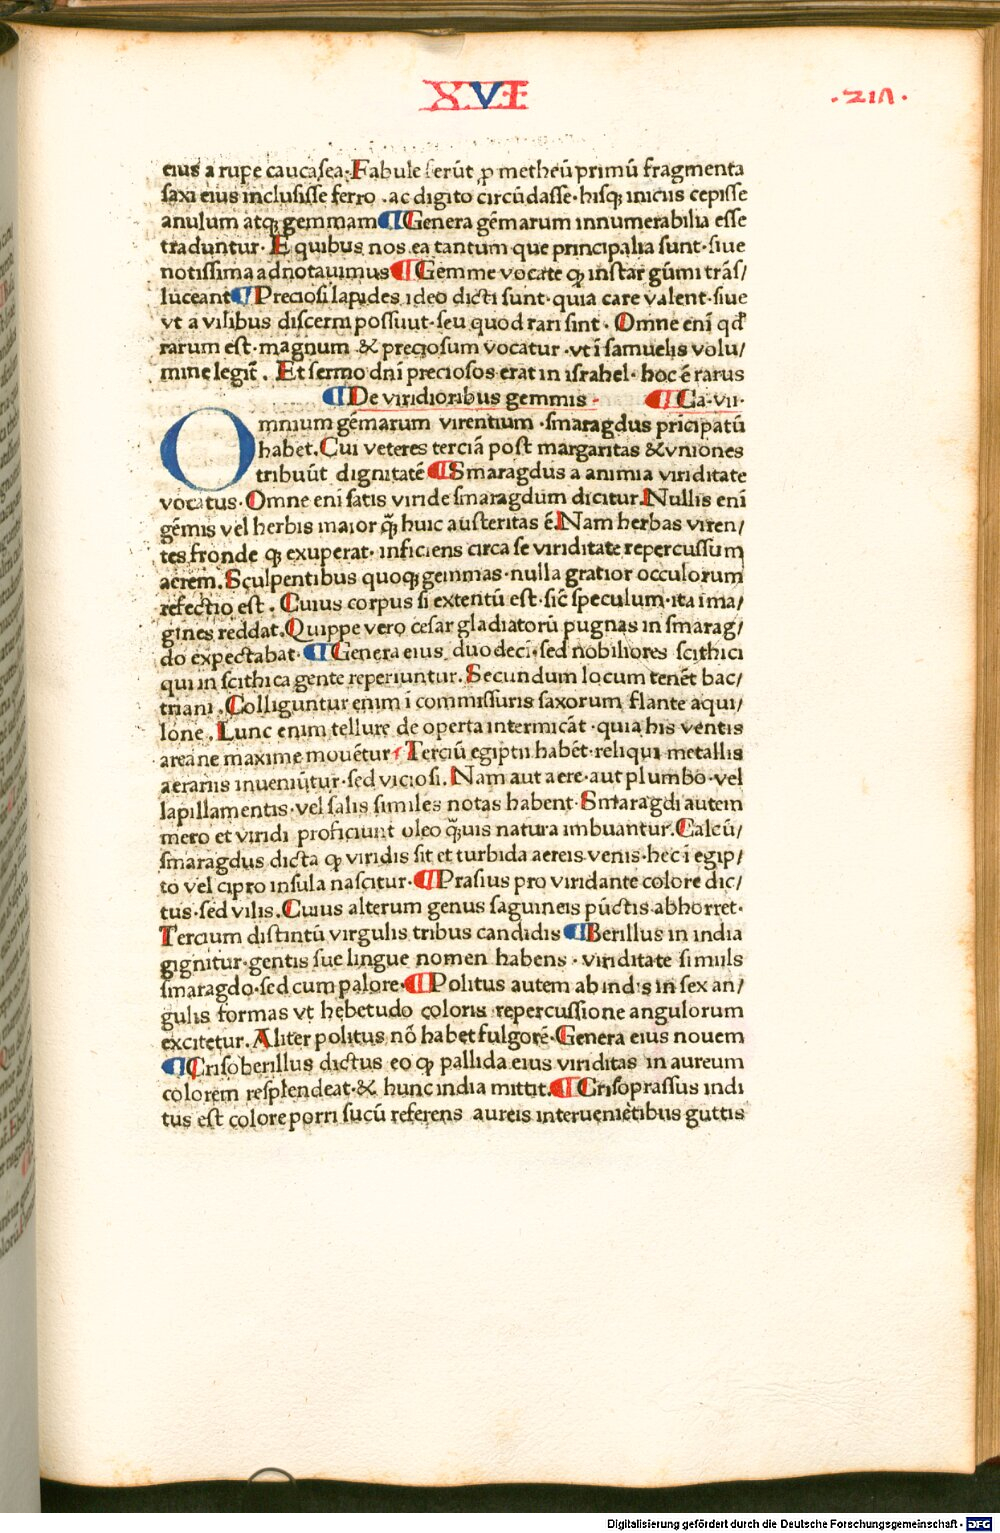 X.V.I.
.217.
eius a rupe caucasea. Fabule ferūt ꝓmetheū primū fragmenta
saxi eius inclusisse ferro .ac digito circūdasse. hisqꝫ iniciis cepisse
anulum atqꝫ gemmam ¶ Genera gēmarum innumerabilia esse
traduntur. E quibus nos ea tantum que principalia sunt. siue
notissima adnotauimus ¶ Gemme vocate ꝙ instar gūmi trās/
luceant ¶ Preciosi lapides ideo dicti sunt. quia care valent. siue
vt a vilibus discerni possuut. seu quod rari sint. Omne enī qd̄
rarum est. magnum & preciosum vocatur .vt ī samuelis volu/
mine legit̄. Et sermo dnī preciosos erat in israhel. hoc ē rarus
¶ De viridioribus gemmis. ¶ Ca.vii.
Omnium gēmarum virentium .smaragdus pricipatū
habet. Cui veteres terciā post margaritas & vniones
tribuūt dignitatē ¶ Smaragdus a animia viriditate
vocatus. Omne enī satis viride smaragdum dicitur. Nullis enī
gēmis vel herbis maior q̄ꝫ huic austeritas ē. Nam herbas viren/
tes fronde qꝫ exuperat. inficiens circa se viriditate repercussum
aerem. Sculpentibus quoqꝫ gemmas. nulla gratior occulorum
refectio est. Cuius corpus si extentū est. sic̄ speculum. ita ima/
gines reddat. Quippe vero cesar gladiatorū pugnas in smarag/
do expectabat. ¶ Genera eius duodeci. sed nobiliores scithici
qui in scithica gente reperiuntur. Secundum locum tenēt bac/
triani. Colliguntur enim ī commissuris saxorum flante aqui/
lone. Lunc enim tellure de operta intermicāt .quia his ventis
areane maxime mouētur. Terciū egiptii habēt. reliqui metallis
aerariis inueniūtur. sed viciosi. Nam aut aere. aut plumbo. vel
lapillamentis. vel salis similes notas habent. Smaragdi autem
mero et viridi proficiunt oleo q̄ꝫuis natura imbuantur. Calcū/
smaragdus dicta ꝙ viridis sit et turbida aereis venis. hec ī egip/
to vel cipro insula nascitur. ¶ Prasius pro viridante colore dic/
tus. sed vilis. Cuius alterum genus saguineis pūctis abhorret.
Tercium distintū virgulis tribus candidis ¶ Berillus in india
gignitur. gentis sue lingue nomen habens. viriditate simuls
smaragdo. sed cum palore. ¶ Politus autem ab indis in sex an/
gulis formas vt hebetudo coloris repercussione angulorum
excitetur. Aliter politus nō habet fulgorē. Genera eius nouem
¶ Crisoberillus dictus eo ꝙ pallida eius viriditas in aureum
colorem resplendeat. & hunc india mittit. ¶ Crisoprassus indi
tus est colore porri sucū referens aureis interueniētibus guttis
Digitalisierung gefördert durch die Deutsche Forschungsgemeinschaft - DFG